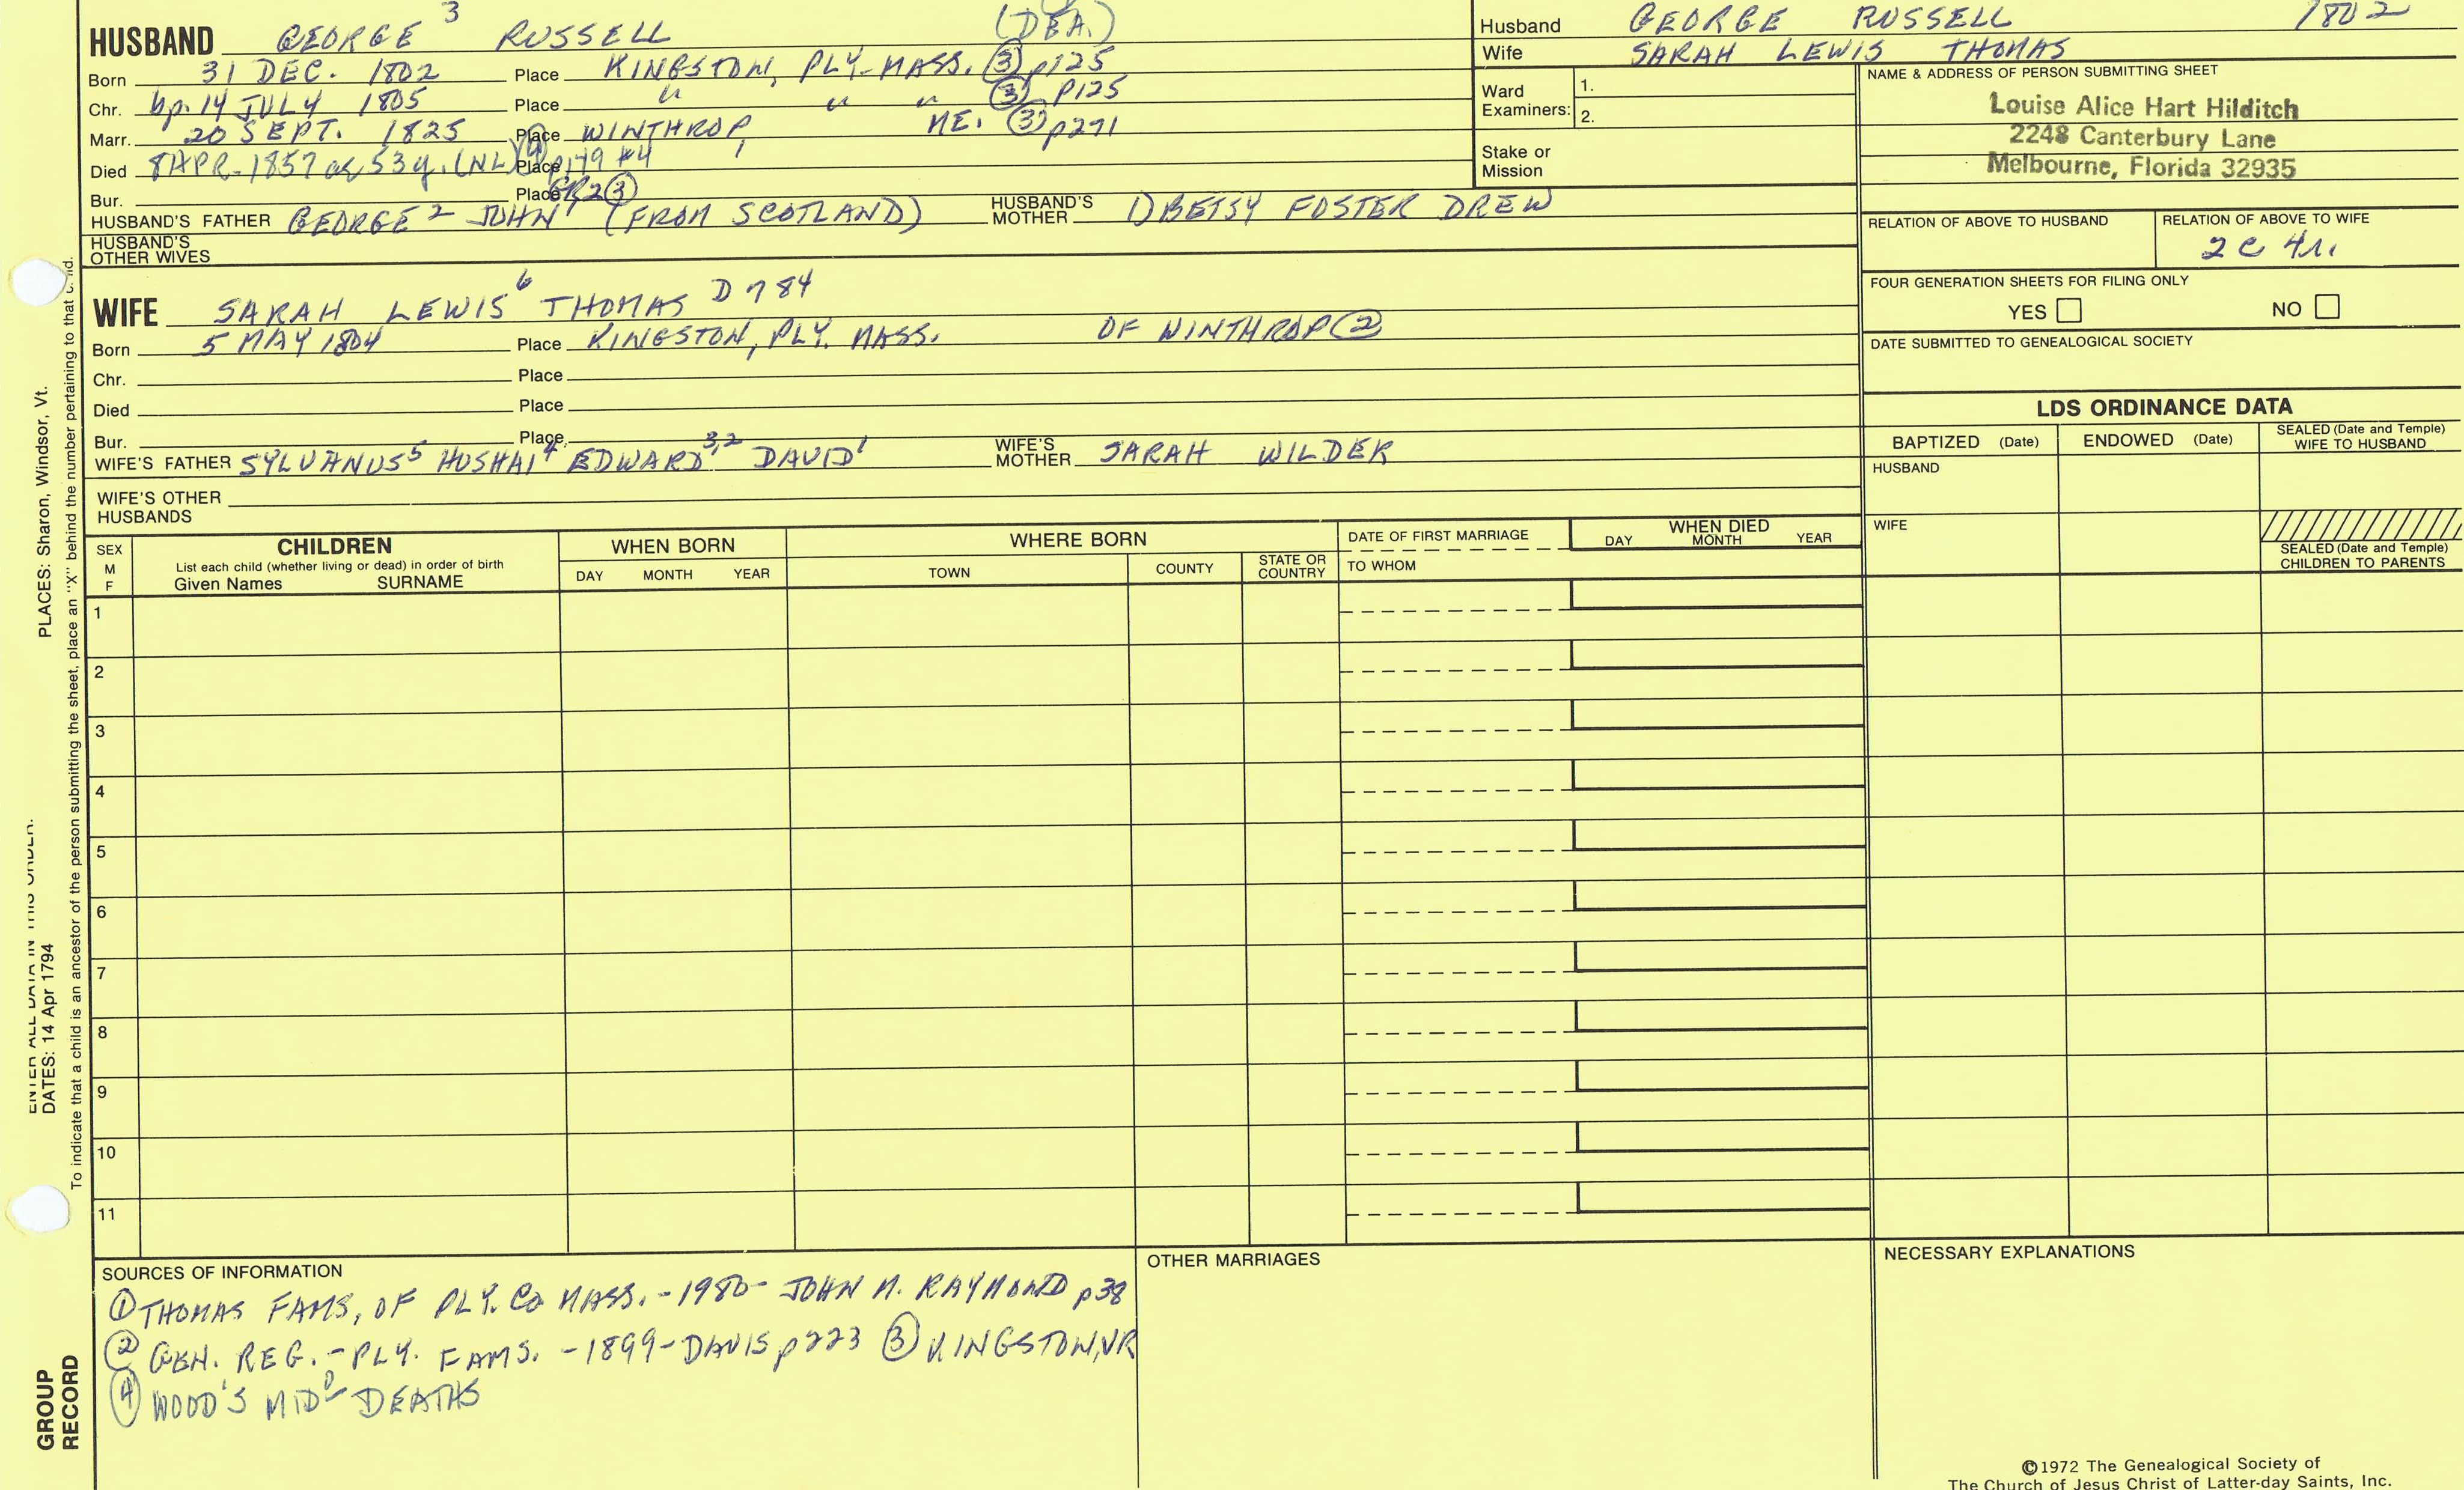 HUSBAND GEORGE 3 RUSSELL (DEA.)
Born 31 DEC. 1802 Place KINGSTON, PLY-MASS. (3) p125
Chr. bp. 14 JULY 1805 Place " " " (3) P125
Marr. 20 SEPT. 1825 Place WINTHROP, ME. (3) p291
Died 8 APR-1857 ag 53y. (NL) (4) Place p179 #4
Bur. Place GR2 (3)
HUSBAND'S FATHER GEORGE 2 JOHN 1 (FROM SCOTLAND) HUSBAND'S MOTHER 1) BETSY FOSTER DREW
HUSBAND'S OTHER WIVES
WIFE SARAH LEWIS 6 THOMAS D784
Born 5 MAY 1804 Place KINGSTON, PLY. MASS. OF WINTHROP (2)
Chr. Place
Died Place
Bur. Place
WIFE'S FATHER SYLVANUS 5 HUSHAI 4 EDWARD 3,2 DAVID 1 WIFE'S MOTHER SARAH WILDER
WIFE'S OTHER HUSBANDS
Husband GEORGE RUSSELL 1802
Wife SARAH LEWIS THOMAS
Ward Examiners: 1.
2.
Stake or Mission
NAME & ADDRESS OF PERSON SUBMITTING SHEET
Louise Alice Hart Hilditch
2248 Canterbury Lane
Melbourne, Florida 32935
RELATION OF ABOVE TO HUSBAND RELATION OF ABOVE TO WIFE
2 C 4r.
FOUR GENERATION SHEETS FOR FILING ONLY
YES NO
DATE SUBMITTED TO GENEALOGICAL SOCIETY
LDS ORDINANCE DATA
BAPTIZED (Date) ENDOWED (Date) SEALED (Date and Temple) WIFE TO HUSBAND
HUSBAND
WIFE
SEALED (Date and Temple) CHILDREN TO PARENTS
SEX M F
CHILDREN
List each child (whether living or dead) in order of birth
Given Names SURNAME
WHEN BORN
DAY MONTH YEAR
WHERE BORN
TOWN COUNTY STATE OR COUNTRY
DATE OF FIRST MARRIAGE
TO WHOM
WHEN DIED
DAY MONTH YEAR
1
2
3
4
5
6
7
8
9
10
11
SOURCES OF INFORMATION
(1) THOMAS FAMS, OF PLY. CO MASS. - 1980 - JOHN M. RAYMOND p38
(2) GEN. REG. - PLY. FAMS. - 1899 - DAVIS p223 (3) KINGSTON, VR
(4) WOOD'S MID'O DEATHS
OTHER MARRIAGES
NECESSARY EXPLANATIONS
©1972 The Genealogical Society of
The Church of Jesus Christ of Latter-day Saints, Inc.
ENTER ALL DATA IN THIS ORDER:
DATES: 14 Apr 1794
PLACES: Sharon, Windsor, Vt.
To indicate that a child is an ancestor of the person submitting the sheet, place an "X" behind the number pertaining to that child.
GROUP
RECORD